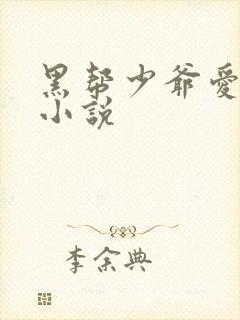 黑帮少爷爱
小説
李余典